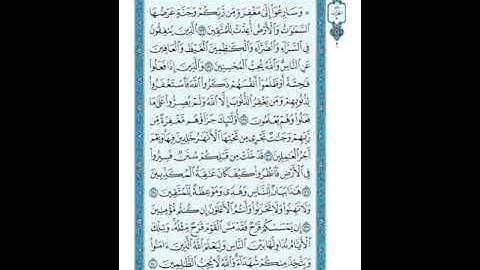 وَسَارِعُوٓا۟ إِلَىٰ مَغْفِرَةٍ مِّن رَّبِّكُمْ وَجَنَّةٍ عَرْضُهَا
ٱلسَّمَـٰوَٰتُ وَٱلْأَرْضُ أُعِدَّتْ لِلْمُتَّقِينَ ١٣٣ ٱلَّذِينَ يُنفِقُونَ
فِى ٱلسَّرَّآءِ وَٱلضَّرَّآءِ وَٱلْكَـٰظِمِينَ ٱلْغَيْظَ وَٱلْعَافِينَ
عَنِ ٱلنَّاسِ وَٱللَّهُ يُحِبُّ ٱلْمُحْسِنِينَ ١٣٤ وَٱلَّذِينَ إِذَا فَعَلُوا۟
فَـٰحِشَةً أَوْ ظَلَمُوٓا۟ أَنفُسَهُمْ ذَكَرُوا۟ ٱللَّهَ فَٱسْتَغْفَرُوا۟
لِذُنُوبِهِمْ وَمَن يَغْفِرُ ٱلذُّنُوبَ إِلَّا ٱللَّهُ وَلَمْ يُصِرُّوا۟ عَلَىٰ مَا
فَعَلُوا۟ وَهُمْ يَعْلَمُونَ ١٣٥ أُو۟لَـٰٓئِكَ جَزَآؤُهُم مَّغْفِرَةٌ مِّن
رَّبِّهِمْ وَجَنَّـٰتٌ تَجْرِى مِن تَحْتِهَا ٱلْأَنْهَـٰرُ خَـٰلِدِينَ فِيهَا وَنِعْمَ
أَجْرُ ٱلْعَـٰمِلِينَ ١٣٦ قَدْ خَلَتْ مِن قَبْلِكُمْ سُنَنٌ فَسِيرُوا۟
فِى ٱلْأَرْضِ فَٱنظُرُوا۟ كَيْفَ كَانَ عَـٰقِبَةُ ٱلْمُكَذِّبِينَ
١٣٧ هَـٰذَا بَيَانٌ لِّلنَّاسِ وَهُدًى وَمَوْعِظَةٌ لِّلْمُتَّقِينَ ١٣٨
وَلَا تَهِنُوا۟ وَلَا تَحْزَنُوا۟ وَأَنتُمُ ٱلْأَعْلَوْنَ إِن كُنتُم مُّؤْمِنِينَ
١٣٩ إِن يَمْسَسْكُمْ قَرْحٌ فَقَدْ مَسَّ ٱلْقَوْمَ قَرْحٌ مِّثْلُهُۥ وَتِلْكَ
ٱلْأَيَّامُ نُدَاوِلُهَا بَيْنَ ٱلنَّاسِ وَلِيَعْلَمَ ٱللَّهُ ٱلَّذِينَ ءَامَنُوا۟
وَيَتَّخِذَ مِنكُمْ شُهَدَآءَ وَٱللَّهُ لَا يُحِبُّ ٱلظَّـٰلِمِينَ ١٤٠